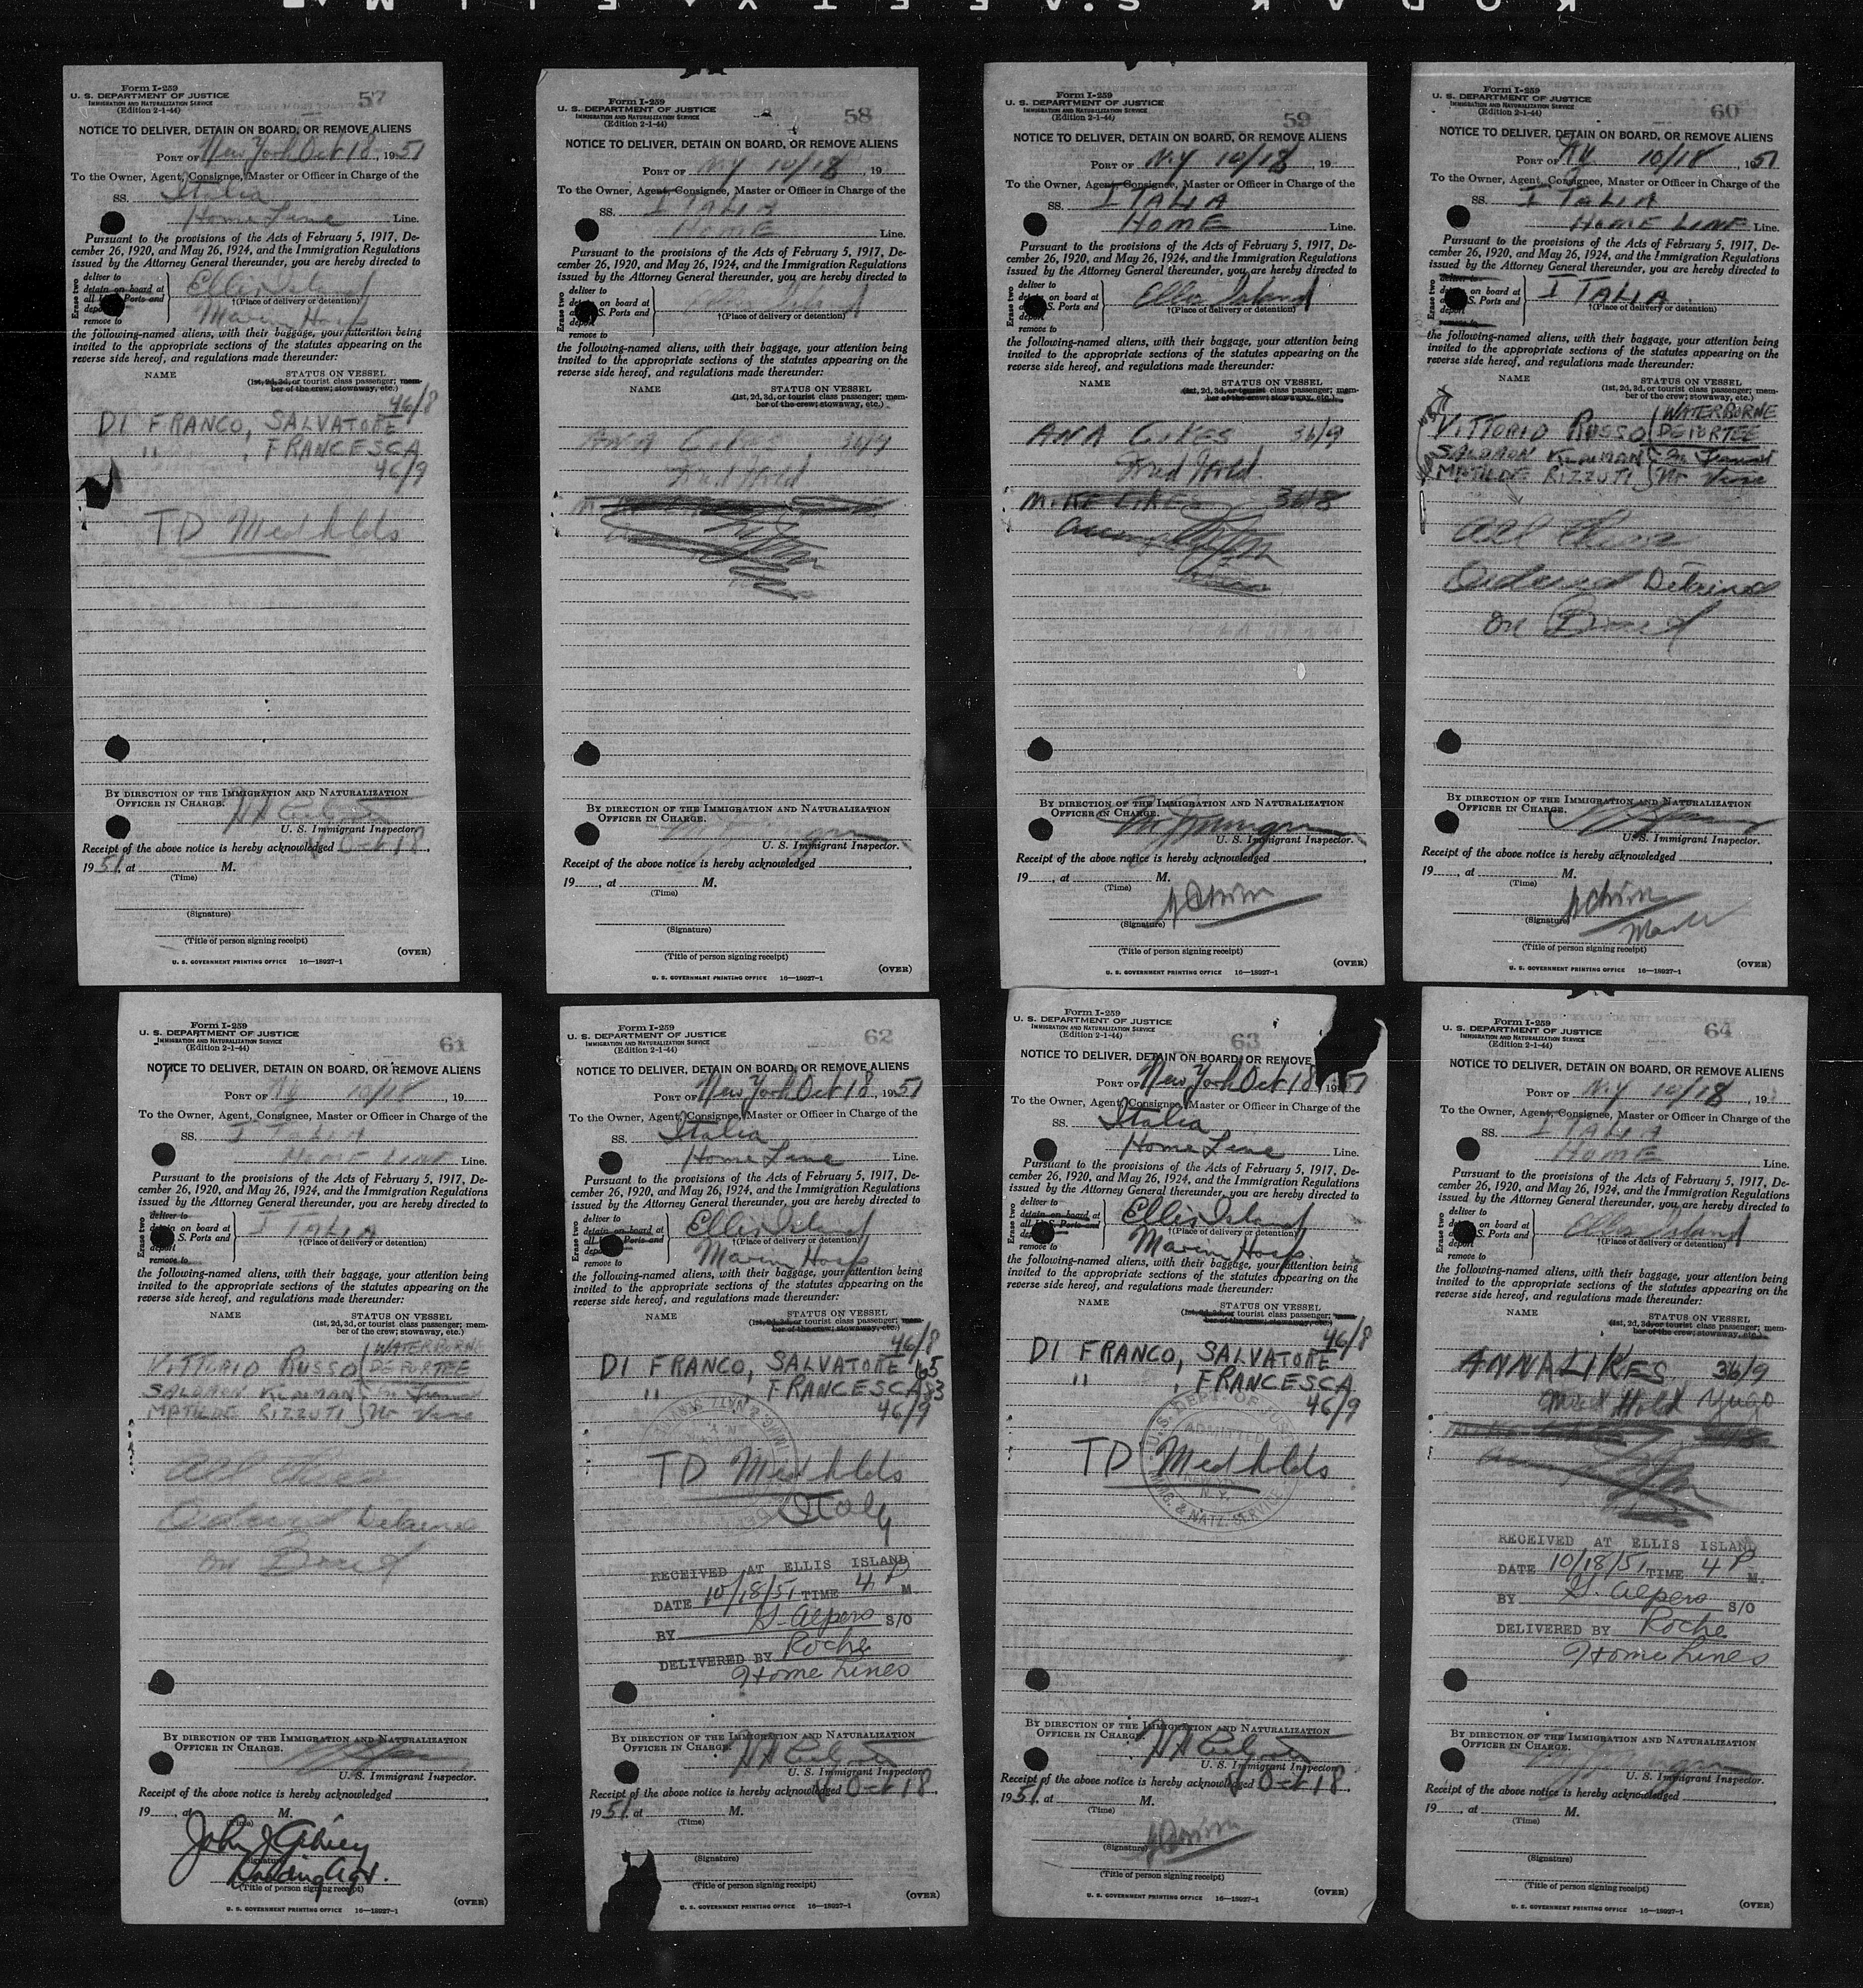 57
Form I-259
U. S. DEPARTMENT OF JUSTICE
IMMIGRATION AND NATURALIZATION SERVICE
(Edition 2-1-44)
NOTICE TO DELIVER, DETAIN ON BOARD, OR REMOVE ALIENS
PORT OF New York Oct 18, 1951
To the Owner, Agent, Consignee, Master or Officer in Charge of the
SS. Italia
Home Line Line.
Pursuant to the provisions of the Acts of February 5, 1917, De-
cember 26, 1920, and May 26, 1924, and the Immigration Regulations
issued by the Attorney General thereunder, you are hereby directed to
Erase two
deliver to
detain on board at
all Ports and
remove to
Ellis Island
†(Place of delivery or detention)
Marin Hosp
the following-named aliens, with their baggage, your attention being
invited to the appropriate sections of the statutes appearing on the
reverse side hereof, and regulations made thereunder:
NAME STATUS ON VESSEL
(1st, 2d, 3d, or tourist class passenger; mem-
ber of the crew; stowaway, etc.)
46/8
DI FRANCO, SALVATORE
" , FRANCESCA
46/9
TD Med Holds
BY DIRECTION OF THE IMMIGRATION AND NATURALIZATION
OFFICER IN CHARGE.
U. S. Immigrant Inspector.
Receipt of the above notice is hereby acknowledged Oct 18
1951, at M.
(Time)
(Signature)
(Title of person signing receipt)
(OVER)
U. S. GOVERNMENT PRINTING OFFICE 16—18927-1
58
Form I-259
U. S. DEPARTMENT OF JUSTICE
IMMIGRATION AND NATURALIZATION SERVICE
(Edition 2-1-44)
NOTICE TO DELIVER, DETAIN ON BOARD, OR REMOVE ALIENS
PORT OF N.Y 10/18, 19
To the Owner, Agent, Consignee, Master or Officer in Charge of the
SS. ITALIA
HOME Line.
Pursuant to the provisions of the Acts of February 5, 1917, De-
cember 26, 1920, and May 26, 1924, and the Immigration Regulations
issued by the Attorney General thereunder, you are hereby directed to
Erase two
deliver to
on board at
S. Ports and
remove to
†(Place of delivery or detention)
the following-named aliens, with their baggage, your attention being
invited to the appropriate sections of the statutes appearing on the
reverse side hereof, and regulations made thereunder:
NAME STATUS ON VESSEL
(1st, 2d, 3d, or tourist class passenger; mem-
ber of the crew; stowaway, etc.)
ANA LIKES 36/9
Med Hold
BY DIRECTION OF THE IMMIGRATION AND NATURALIZATION
OFFICER IN CHARGE.
U. S. Immigrant Inspector.
Receipt of the above notice is hereby acknowledged
19, at M.
(Time)
(Signature)
(Title of person signing receipt)
(OVER)
U. S. GOVERNMENT PRINTING OFFICE 16—18927-1
59
Form I-259
U. S. DEPARTMENT OF JUSTICE
IMMIGRATION AND NATURALIZATION SERVICE
(Edition 2-1-44)
NOTICE TO DELIVER, DETAIN ON BOARD, OR REMOVE ALIENS
PORT OF N.Y 10/18, 19
To the Owner, Agent, Consignee, Master or Officer in Charge of the
SS. ITALIA
HOME Line.
Pursuant to the provisions of the Acts of February 5, 1917, De-
cember 26, 1920, and May 26, 1924, and the Immigration Regulations
issued by the Attorney General thereunder, you are hereby directed to
Erase two
deliver to
on board at
S. Ports and
remove to
Ellis Island
†(Place of delivery or detention)
the following-named aliens, with their baggage, your attention being
invited to the appropriate sections of the statutes appearing on the
reverse side hereof, and regulations made thereunder:
NAME STATUS ON VESSEL
(1st, 2d, 3d, or tourist class passenger; mem-
ber of the crew; stowaway, etc.)
ANA LIKES 36/9
Med Hold
MIKE LIKES 36/8
BY DIRECTION OF THE IMMIGRATION AND NATURALIZATION
OFFICER IN CHARGE.
U. S. Immigrant Inspector.
Receipt of the above notice is hereby acknowledged
19, at M.
(Time)
(Signature)
(Title of person signing receipt)
(OVER)
U. S. GOVERNMENT PRINTING OFFICE 16—18927-1
60
Form I-259
U. S. DEPARTMENT OF JUSTICE
IMMIGRATION AND NATURALIZATION SERVICE
(Edition 2-1-44)
NOTICE TO DELIVER, DETAIN ON BOARD, OR REMOVE ALIENS
PORT OF NY 10/18, 1951
To the Owner, Agent, Consignee, Master or Officer in Charge of the
SS. ITALIA
HOME LINE Line.
Pursuant to the provisions of the Acts of February 5, 1917, De-
cember 26, 1920, and May 26, 1924, and the Immigration Regulations
issued by the Attorney General thereunder, you are hereby directed to
Erase two
deliver to
on board at
S. Ports and
remove to
ITALIA
†(Place of delivery or detention)
the following-named aliens, with their baggage, your attention being
invited to the appropriate sections of the statutes appearing on the
reverse side hereof, and regulations made thereunder:
NAME STATUS ON VESSEL
(1st, 2d, 3d, or tourist class passenger; mem-
ber of the crew; stowaway, etc.)
WATERBORNE
VITTORIO RUSSO DEPORTEE
SALOMON In Transit
MATILDE RIZZUTI No Visa
All three
Ordered Detained
on Board
BY DIRECTION OF THE IMMIGRATION AND NATURALIZATION
OFFICER IN CHARGE.
U. S. Immigrant Inspector.
Receipt of the above notice is hereby acknowledged
19, at M.
(Time)
(Signature)
(Title of person signing receipt)
(OVER)
U. S. GOVERNMENT PRINTING OFFICE 16—18927-1
61
Form I-259
U. S. DEPARTMENT OF JUSTICE
IMMIGRATION AND NATURALIZATION SERVICE
(Edition 2-1-44)
NOTICE TO DELIVER, DETAIN ON BOARD, OR REMOVE ALIENS
PORT OF NY 10/18, 19
To the Owner, Agent, Consignee, Master or Officer in Charge of the
SS. ITALIA
HOME LINE Line.
Pursuant to the provisions of the Acts of February 5, 1917, De-
cember 26, 1920, and May 26, 1924, and the Immigration Regulations
issued by the Attorney General thereunder, you are hereby directed to
Erase two
deliver to
detain on board at
S. Ports and
deport
remove to
ITALIA
†(Place of delivery or detention)
the following-named aliens, with their baggage, your attention being
invited to the appropriate sections of the statutes appearing on the
reverse side hereof, and regulations made thereunder:
NAME STATUS ON VESSEL
(1st, 2d, 3d, or tourist class passenger; mem-
ber of the crew; stowaway, etc.)
WATERBORNE
VITTORIO RUSSO DEPORTEE
SALOMON In Transit
MATILDE RIZZUTI No Visa
All three
Ordered Detained
on Board
BY DIRECTION OF THE IMMIGRATION AND NATURALIZATION
OFFICER IN CHARGE.
U. S. Immigrant Inspector.
Receipt of the above notice is hereby acknowledged
19, at M.
(Time)
John J
(Signature)
Agt.
(Title of person signing receipt)
(OVER)
U. S. GOVERNMENT PRINTING OFFICE 16—18927-1
62
Form I-259
U. S. DEPARTMENT OF JUSTICE
IMMIGRATION AND NATURALIZATION SERVICE
(Edition 2-1-44)
NOTICE TO DELIVER, DETAIN ON BOARD, OR REMOVE ALIENS
PORT OF New York Oct 18, 1951
To the Owner, Agent, Consignee, Master or Officer in Charge of the
SS. Italia
Home Line Line.
Pursuant to the provisions of the Acts of February 5, 1917, De-
cember 26, 1920, and May 26, 1924, and the Immigration Regulations
issued by the Attorney General thereunder, you are hereby directed to
Erase two
deliver to
detain on board at
all Ports and
remove to
Ellis Island
†(Place of delivery or detention)
Marin Hosp
the following-named aliens, with their baggage, your attention being
invited to the appropriate sections of the statutes appearing on the
reverse side hereof, and regulations made thereunder:
NAME STATUS ON VESSEL
(1st, 2d, 3d, or tourist class passenger; mem-
ber of the crew; stowaway, etc.)
46/8
DI FRANCO, SALVATORE 65
" , FRANCESCA 53
46/9
TD Med Holds
Italy
RECEIVED AT ELLIS ISLAND
DATE 10/18/51 TIME 4 P M.
BY S. Alpers S/O
DELIVERED BY Roche
Home Lines
BY DIRECTION OF THE IMMIGRATION AND NATURALIZATION
OFFICER IN CHARGE.
U. S. Immigrant Inspector
Receipt of the above notice is hereby acknowledged Oct 18
1951, at M.
(Time)
(Signature)
(Title of person signing receipt)
(OVER)
U. S. GOVERNMENT PRINTING OFFICE 16—18927-1
63
Form I-259
U. S. DEPARTMENT OF JUSTICE
IMMIGRATION AND NATURALIZATION SERVICE
(Edition 2-1-44)
NOTICE TO DELIVER, DETAIN ON BOARD, OR REMOVE
PORT OF New York Oct 18, 1951
To the Owner, Agent, Consignee, Master or Officer in Charge of the
SS. Italia
Home Line Line.
Pursuant to the provisions of the Acts of February 5, 1917, De-
cember 26, 1920, and May 26, 1924, and the Immigration Regulations
issued by the Attorney General thereunder, you are hereby directed to
Erase two
deliver to
detain on board at
all U. S. Ports and
remove to
Ellis Island
†(Place of delivery or detention)
Marin Hosp.
the following-named aliens, with their baggage, your attention being
invited to the appropriate sections of the statutes appearing on the
reverse side hereof, and regulations made thereunder:
NAME STATUS ON VESSEL
(1st, 2d, 3d, or tourist class passenger; mem-
ber of the crew; stowaway, etc.)
46/8
DI FRANCO, SALVATORE
" , FRANCESCA
46/9
U.S. DEPT. OF JUSTICE
ADMITTED
N. Y.
IMMIG. & NATZ. SERVICE
TD Med Holds
BY DIRECTION OF THE IMMIGRATION AND NATURALIZATION
OFFICER IN CHARGE.
U. S. Immigrant Inspector
Receipt of the above notice is hereby acknowledged Oct 18
1951, at M.
(Time)
(Signature)
(Title of person signing receipt)
(OVER)
U. S. GOVERNMENT PRINTING OFFICE 16—18927-1
64
Form I-259
U. S. DEPARTMENT OF JUSTICE
IMMIGRATION AND NATURALIZATION SERVICE
(Edition 2-1-44)
NOTICE TO DELIVER, DETAIN ON BOARD, OR REMOVE ALIENS
PORT OF N.Y 10/18, 19
To the Owner, Agent, Consignee, Master or Officer in Charge of the
SS. ITALIA
HOME Line.
Pursuant to the provisions of the Acts of February 5, 1917, De-
cember 26, 1920, and May 26, 1924, and the Immigration Regulations
issued by the Attorney General thereunder, you are hereby directed to
Erase two
deliver to
on board at
S. Ports and
deport
remove to
Ellis Island
†(Place of delivery or detention)
the following-named aliens, with their baggage, your attention being
invited to the appropriate sections of the statutes appearing on the
reverse side hereof, and regulations made thereunder:
NAME STATUS ON VESSEL
(1st, 2d, 3d, or tourist class passenger; mem-
ber of the crew; stowaway, etc.)
ANNA LIKES 36/9
Med Hold Yugo
RECEIVED AT ELLIS ISLAND
DATE 10/18/51 TIME 4 P M.
BY S. Alpers S/O
DELIVERED BY Roche
Home Lines
BY DIRECTION OF THE IMMIGRATION AND NATURALIZATION
OFFICER IN CHARGE.
U. S. Immigrant Inspector.
Receipt of the above notice is hereby acknowledged
19, at M.
(Time)
(Signature)
(Title of person signing receipt)
(OVER)
U. S. GOVERNMENT PRINTING OFFICE 16—18927-1